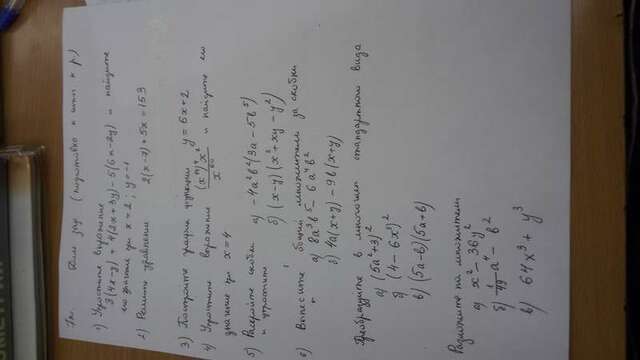 7кл. Дом. зад (подготовка к итог к р.)
1) Упростите выражение
3(4x-y) + 4(2x+3y) - 5(6x-2y) и найдите
его значение при x = 2; y = -1
2) Решите уравнение 2(x-7)+5x = 153
3) Постройте график функции y = 6x+2
4) Упростите выражение и найдите его
значение при x = 4
5) Раскройте скобки а) -4a²b²(3a - 5b⁵)
и упростите б) (x-y)(x²+xy-y²)
6) Вынесите общий множитель за скобки
а) 8a³b⁵ - 6a⁴b²
б) 4a(x+y) - 9b(x+y)
Преобразуйте в многочлен стандартного вида
а) (5a²+3)²
б) (4-6x³)²
в) (5a-b)(5a+b)
Разложите на множители
а) x² - 36y²
б) 1/49 a⁴ - b²
в) 64x³ + y³